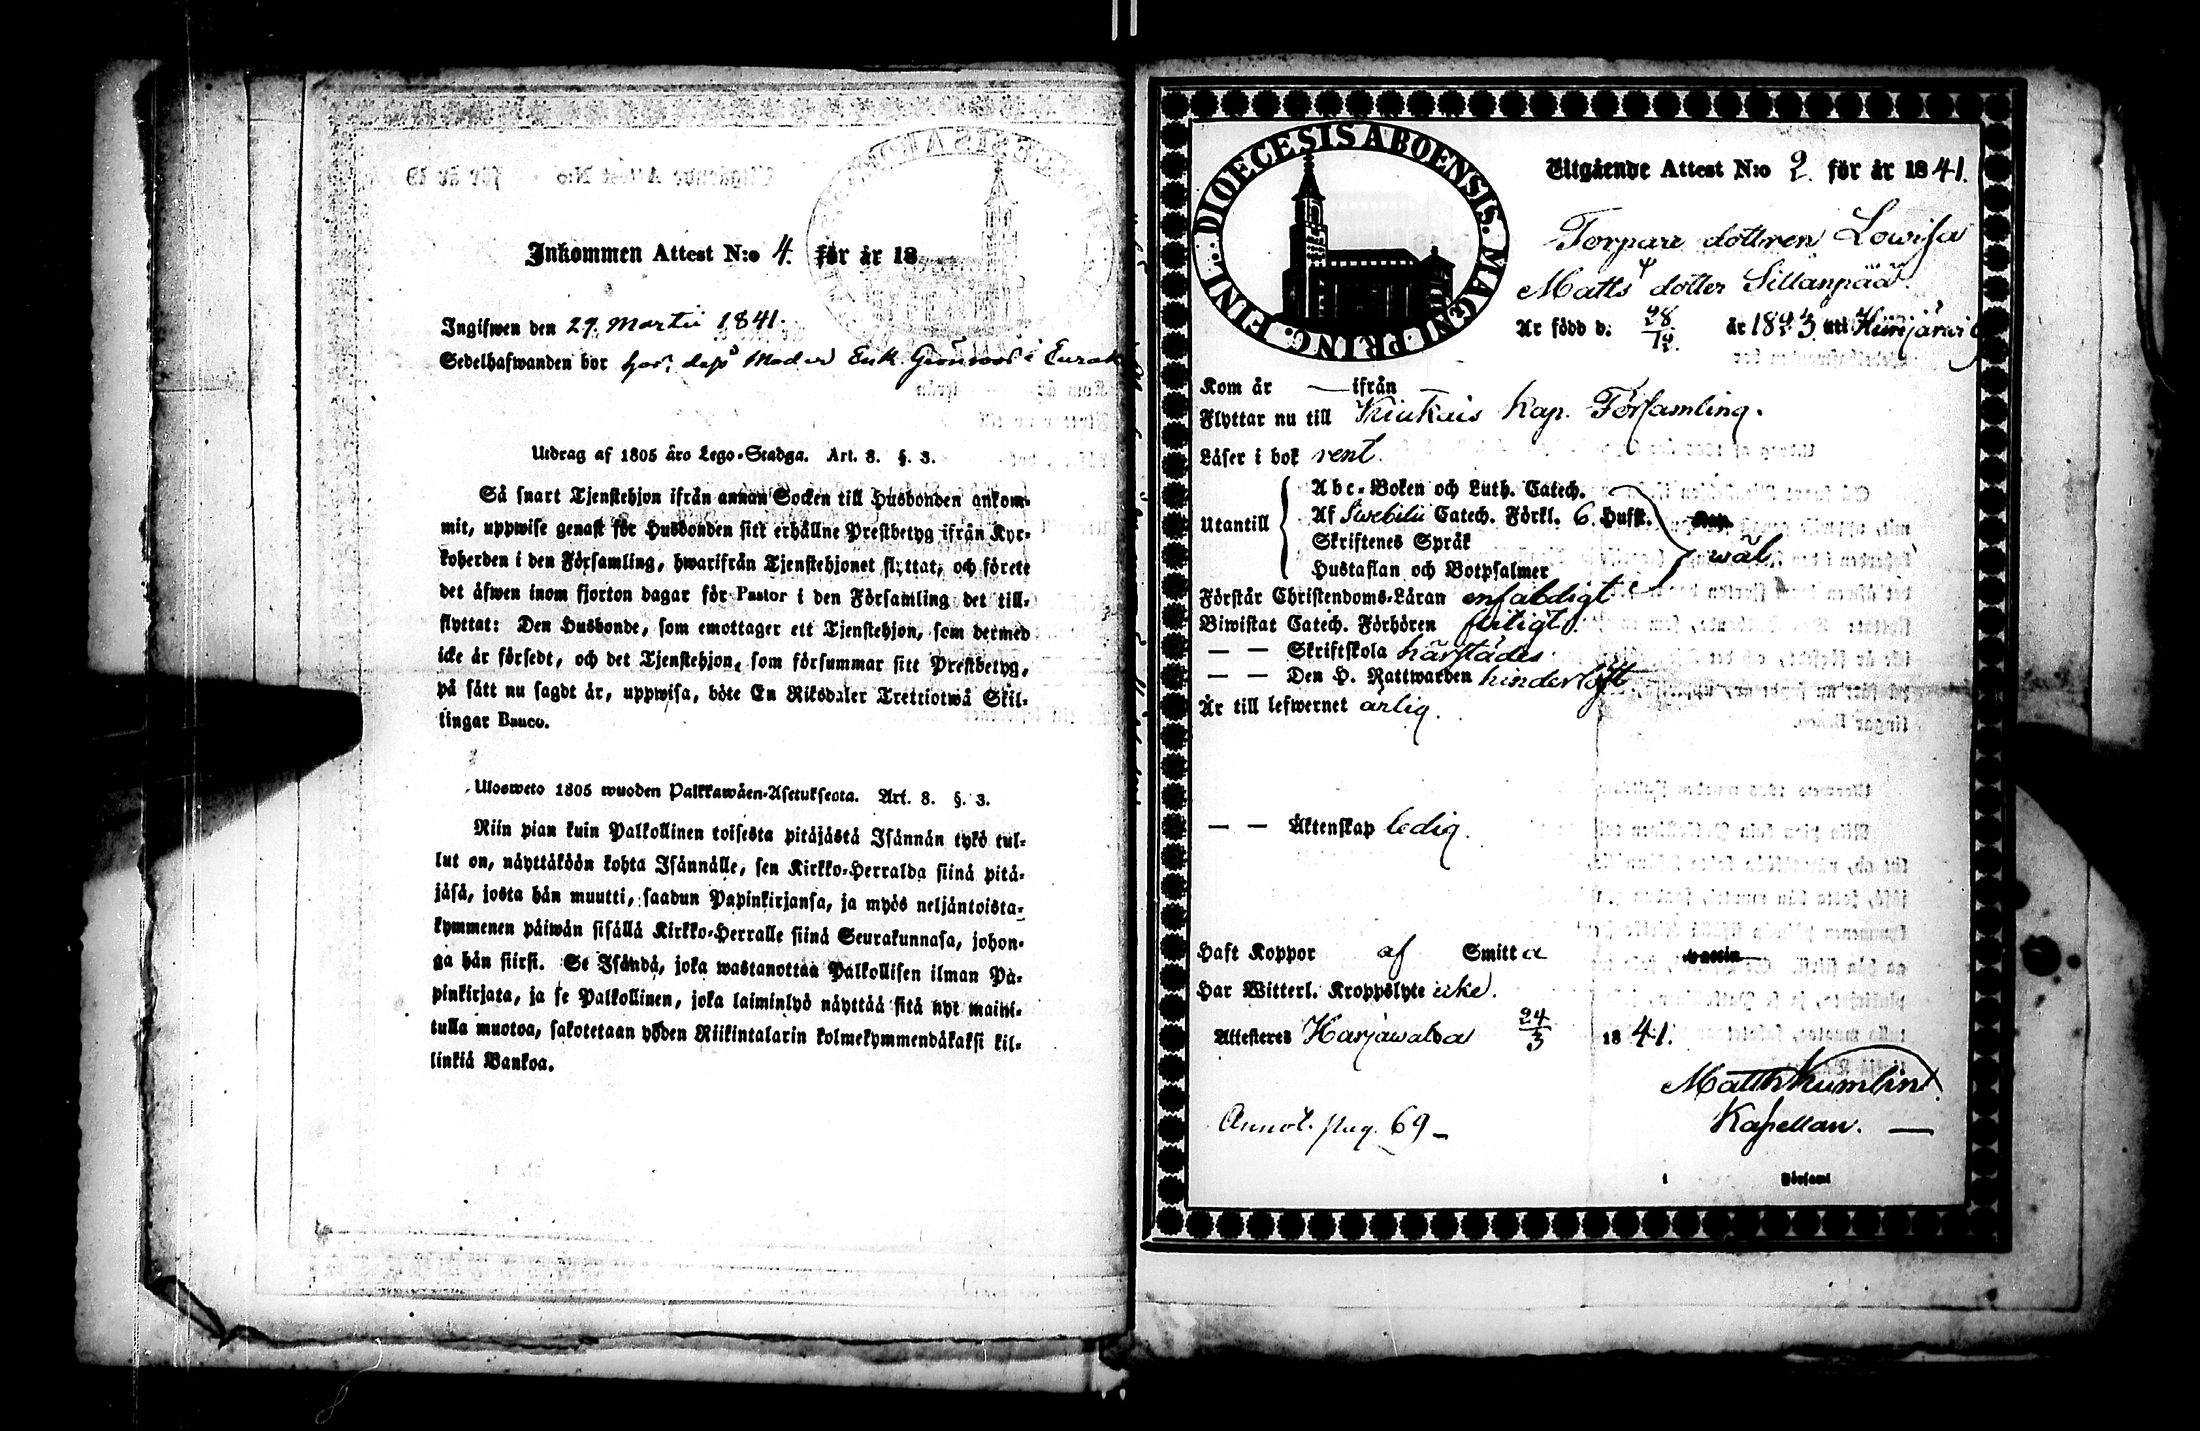 Inkommen Attest N:o 4. för år 18
Ingifwen den 29. Martii 1841.
Sedelhafwanden bor hos dess Moder Erik i Eurak
Utdrag af 1805 års Lego-Stadga. Art. 8. §. 3.
Så snart Tjenstehjon ifrån annan Socken till Husbonden ankom-
mit, uppwise genast för Husbonden sitt erhållne Prestbetyg ifrån Kyr-
koherden i den Församling, hwarifrån Tjenstehjonet flyttat, och förete
det äfwen inom fjorton dagar för Pastor i den Församling det till-
flyttat: Den Husbonde, som emottager ett Tjenstehjon, som dermed
icke är försedt, och det Tjenstehjon, som försummar sitt Prestbetyg,
på sätt nu sagdt är, uppwisa, böte En Riksdaler Trettiotwå Skil-
lingar Banco.
Ulosweto 1805 wuoden Palkkawäen-Asetuksesta. Art. 8. §. 3.
Niin pian kuin Palkollinen toisesta pitäjästä Isännän tykö tul-
lut on, näyttäköön kohta Isännälle, sen Kirkko-Herralda siinä pitä-
jäsä, josta hän muutti, saadun Papinkirjansa, ja myös neljäntoista-
kymmenen päiwän sisällä Kirkko-Herralle siinä Seurakunnasa, johon-
ga hän siirsi. Se Isändä, joka wastanottaa Palkollisen ilman Pa-
pinkirjata, ja se Palkollinen, joka laiminlyö näyttää sitä nyt maini-
tulla muotoa, sakotetaan yhden Riikintalarin kolmekymmendäkaksi kil-
linkiä Bankoa.
FINL. DIOECESIS ABOENSIS. MAGNI PRING.
Utgående Attest N:o 2. för år 1841.
Torpare dottren Lowisa
Matts dotter Sillanpää
Är född d. 28/12. år 1823 uti Kiinjärvi
Kom år — ifrån —
Flyttar nu till Kiukais Kap. Församling.
Läser i bok rent.
Utantill
Abc-Boken och Luth. Catech.
Af Swebilii Catech. Förkl. 6. Hufst.
Skriftenes Språk
Hustaflan och Botpsalmer
wäl
Förstår Christendoms-Läran enfaldigt
Biwistat Catech. Förhören flitigt.
— — Skriftskola härstädes
— — Den H. Nattwarden hinderlöst
Är till lefwernet ärlig.
— — Äktenskap ledig.
Haft Koppor af Smitta
Har Witterl. Kroppslyte icke.
Attesteres Harjawalda 24/3 1841.
Matth Kumlin
Kapellan. —
Annot. pag. 69 —
i Församl